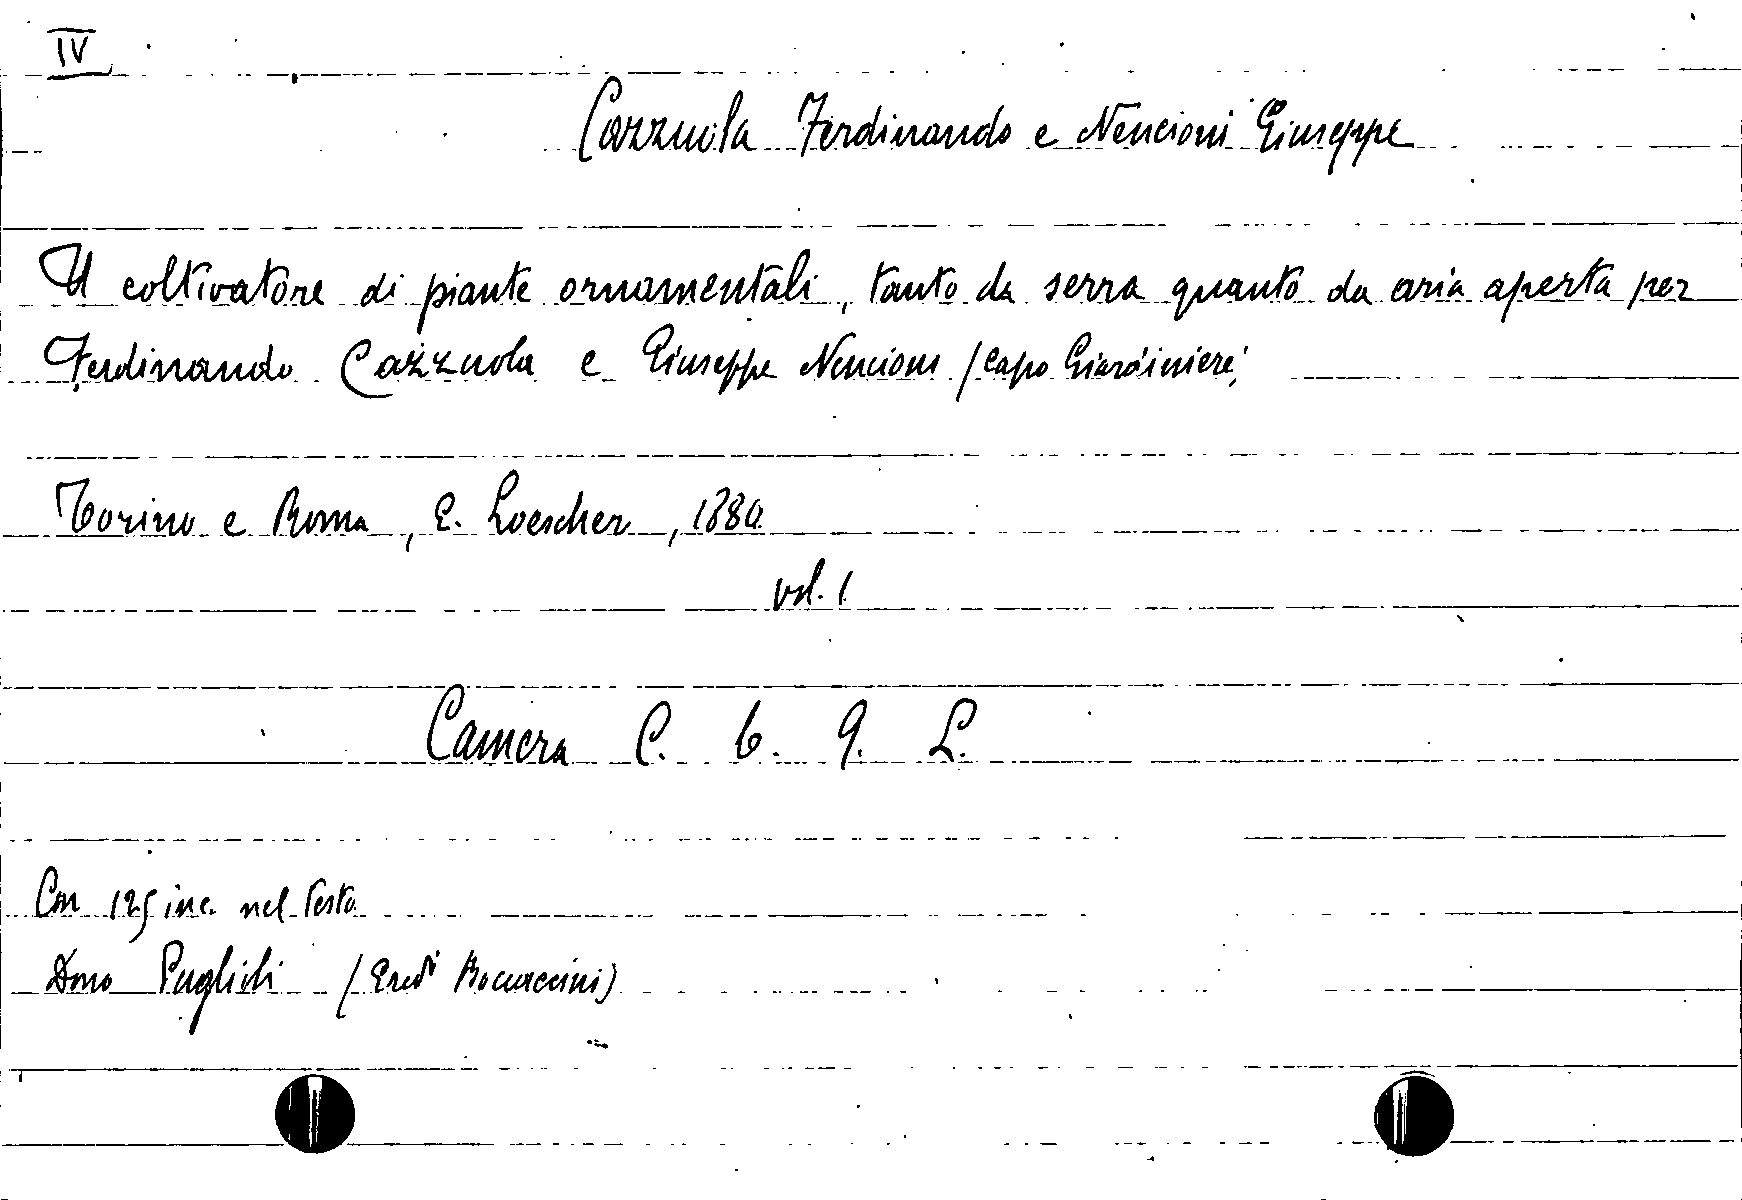 IV
Cazzuola Ferdinando e Nencioni Giuseppe
Il coltivatore di piante ornamentali, tanto da serra quanto da aria aperta per
Ferdinando Cazzuola e Giuseppe Nencioni (capo Giardiniere)
Torino e Roma, E. Loescher, 1880.
vol. 1
Camera C. b. 9. L.
Con 125 inc. nel testo
Dono Puglisi (Eredi Boccaccini)